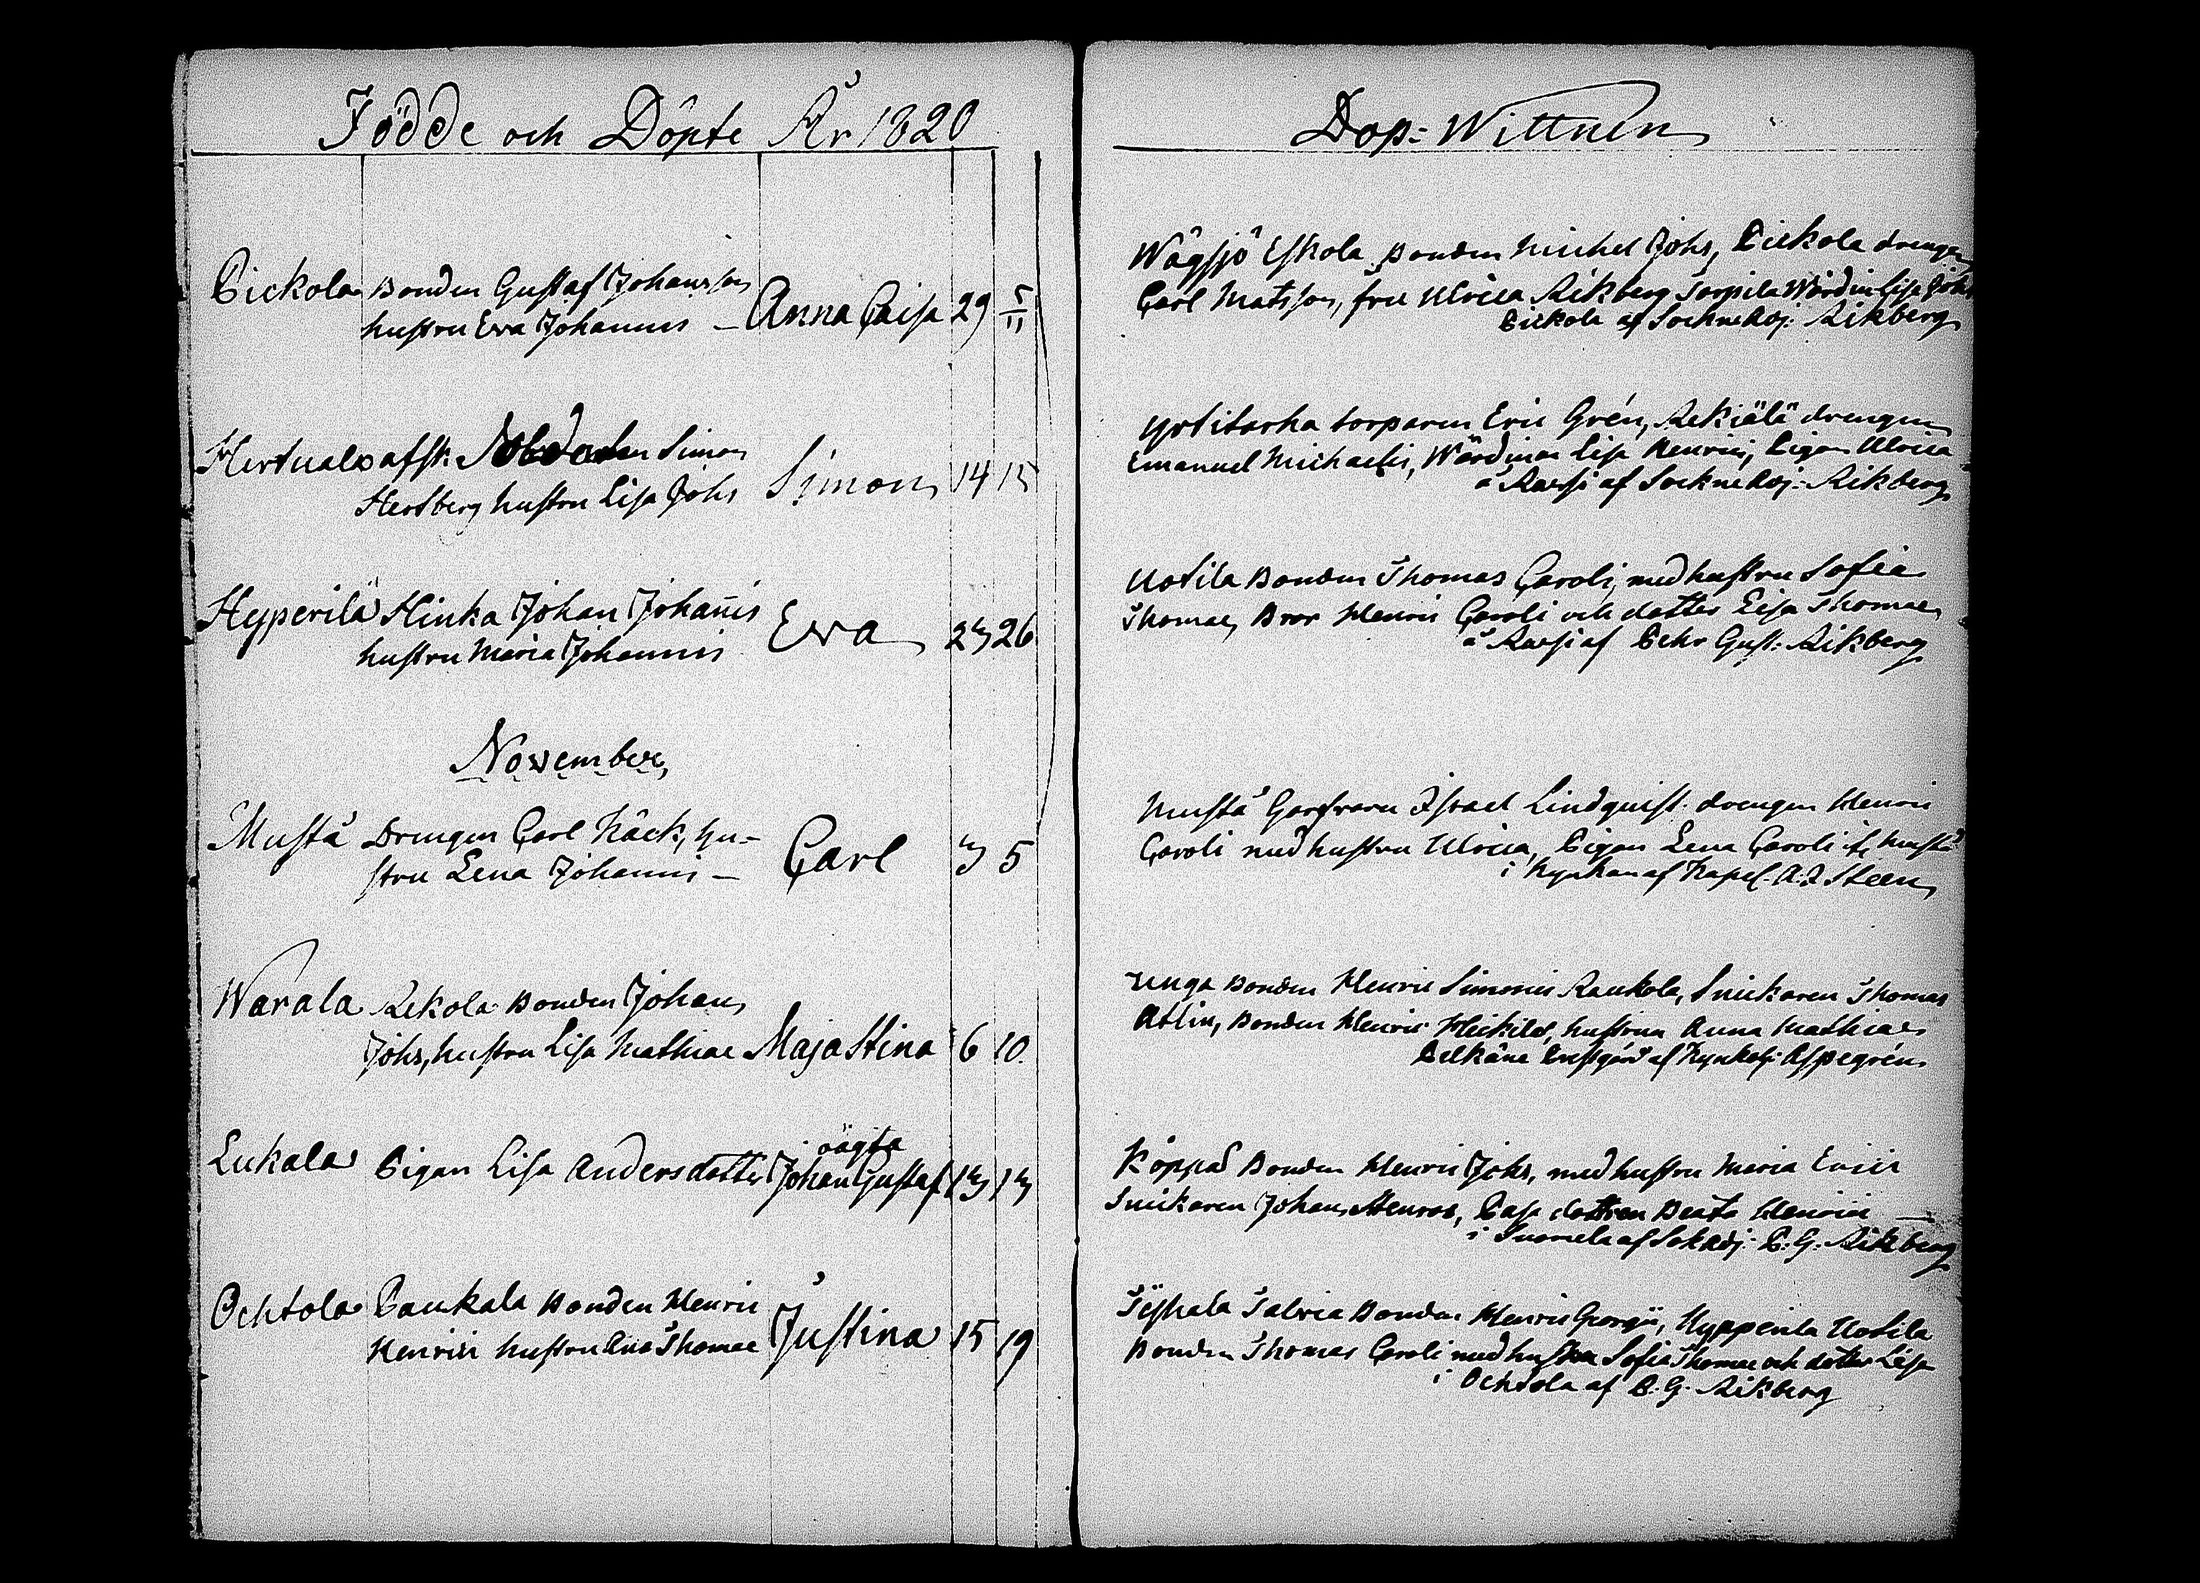 Födde och Döpte År 1820
Pickola Bonden Gustaf Johansson
hustru Ewa Johannis — Anna Caisa 29 5/11
Hertuala afsk: Soldaten Simon
Hertberg hustru Lisa Johs Simon 14 15
Hyperilä Hinka Johan Johañis
hustru Maria Johannis Ewa 23 26
November
Mustå Drengen Carl Käck, hu-
stru Lena Johannis — Carl 3 5
Warala Rekola Bonden Johan
Johs, hustru Lisa Mathiae Maja Stina 6 10.
oägta
Lukala Pigan Lisa Andersdotter Johan Gustaf 13 13
Ochtola Paukala Bonden Henric
Henrici hustru Ana Thomae Justina 15 19
Dop-Wittnen
Wågsjö Eskola Bonden Michel Johs, Pickola drengen
Carl Matsson, fru Ulrica Rikberg Sorpila Wärdin Lisa Johs
Pickola af SockneAdj: Rikberg
Yrtitarha torparen Eric Grén, Rekiälä drengen
Emanuel Michaelis, Wärdinan Lisa Henrici, Pigan Ulrica
å Rarsi af SockneAdj: Rikberg
Uotila Bonden Thomas Caroli, med hustru Sofia
Thomae, Bror Henric Caroli och dotter Lisa Thomae,
å Rarsi af Pehr Gust: Rikberg
Mustå Garfvaren Israel Lindquist. drengen Henric
Caroli med hustru Ulrica, Pigan Lena Caroli fr Mustå
i Kyrkan af Kapel. A. J Steen
Unga Bonden Henric Simonis Raukola, Snickaren Thomas
Atlin, Bonden Henric Hickilä, hustrun Anna Mathiae
Pelkäne Prestgård af Kyrkoh: Aspegrén
Köppä Bonden Henric Johs, med hustru Maria Erici
Snickaren Johan Stenros, Piga dottren Beata Henrici
i Suomela af SokAdj: P. G: Rikberg
Tÿskala Talvia Bonden Henric Georgii, Hypperila Uotila
Bonden Thomas Caroli med hustru Sofia Thomae och dotter Lisa
i Ochtola af P. G. Rikberg